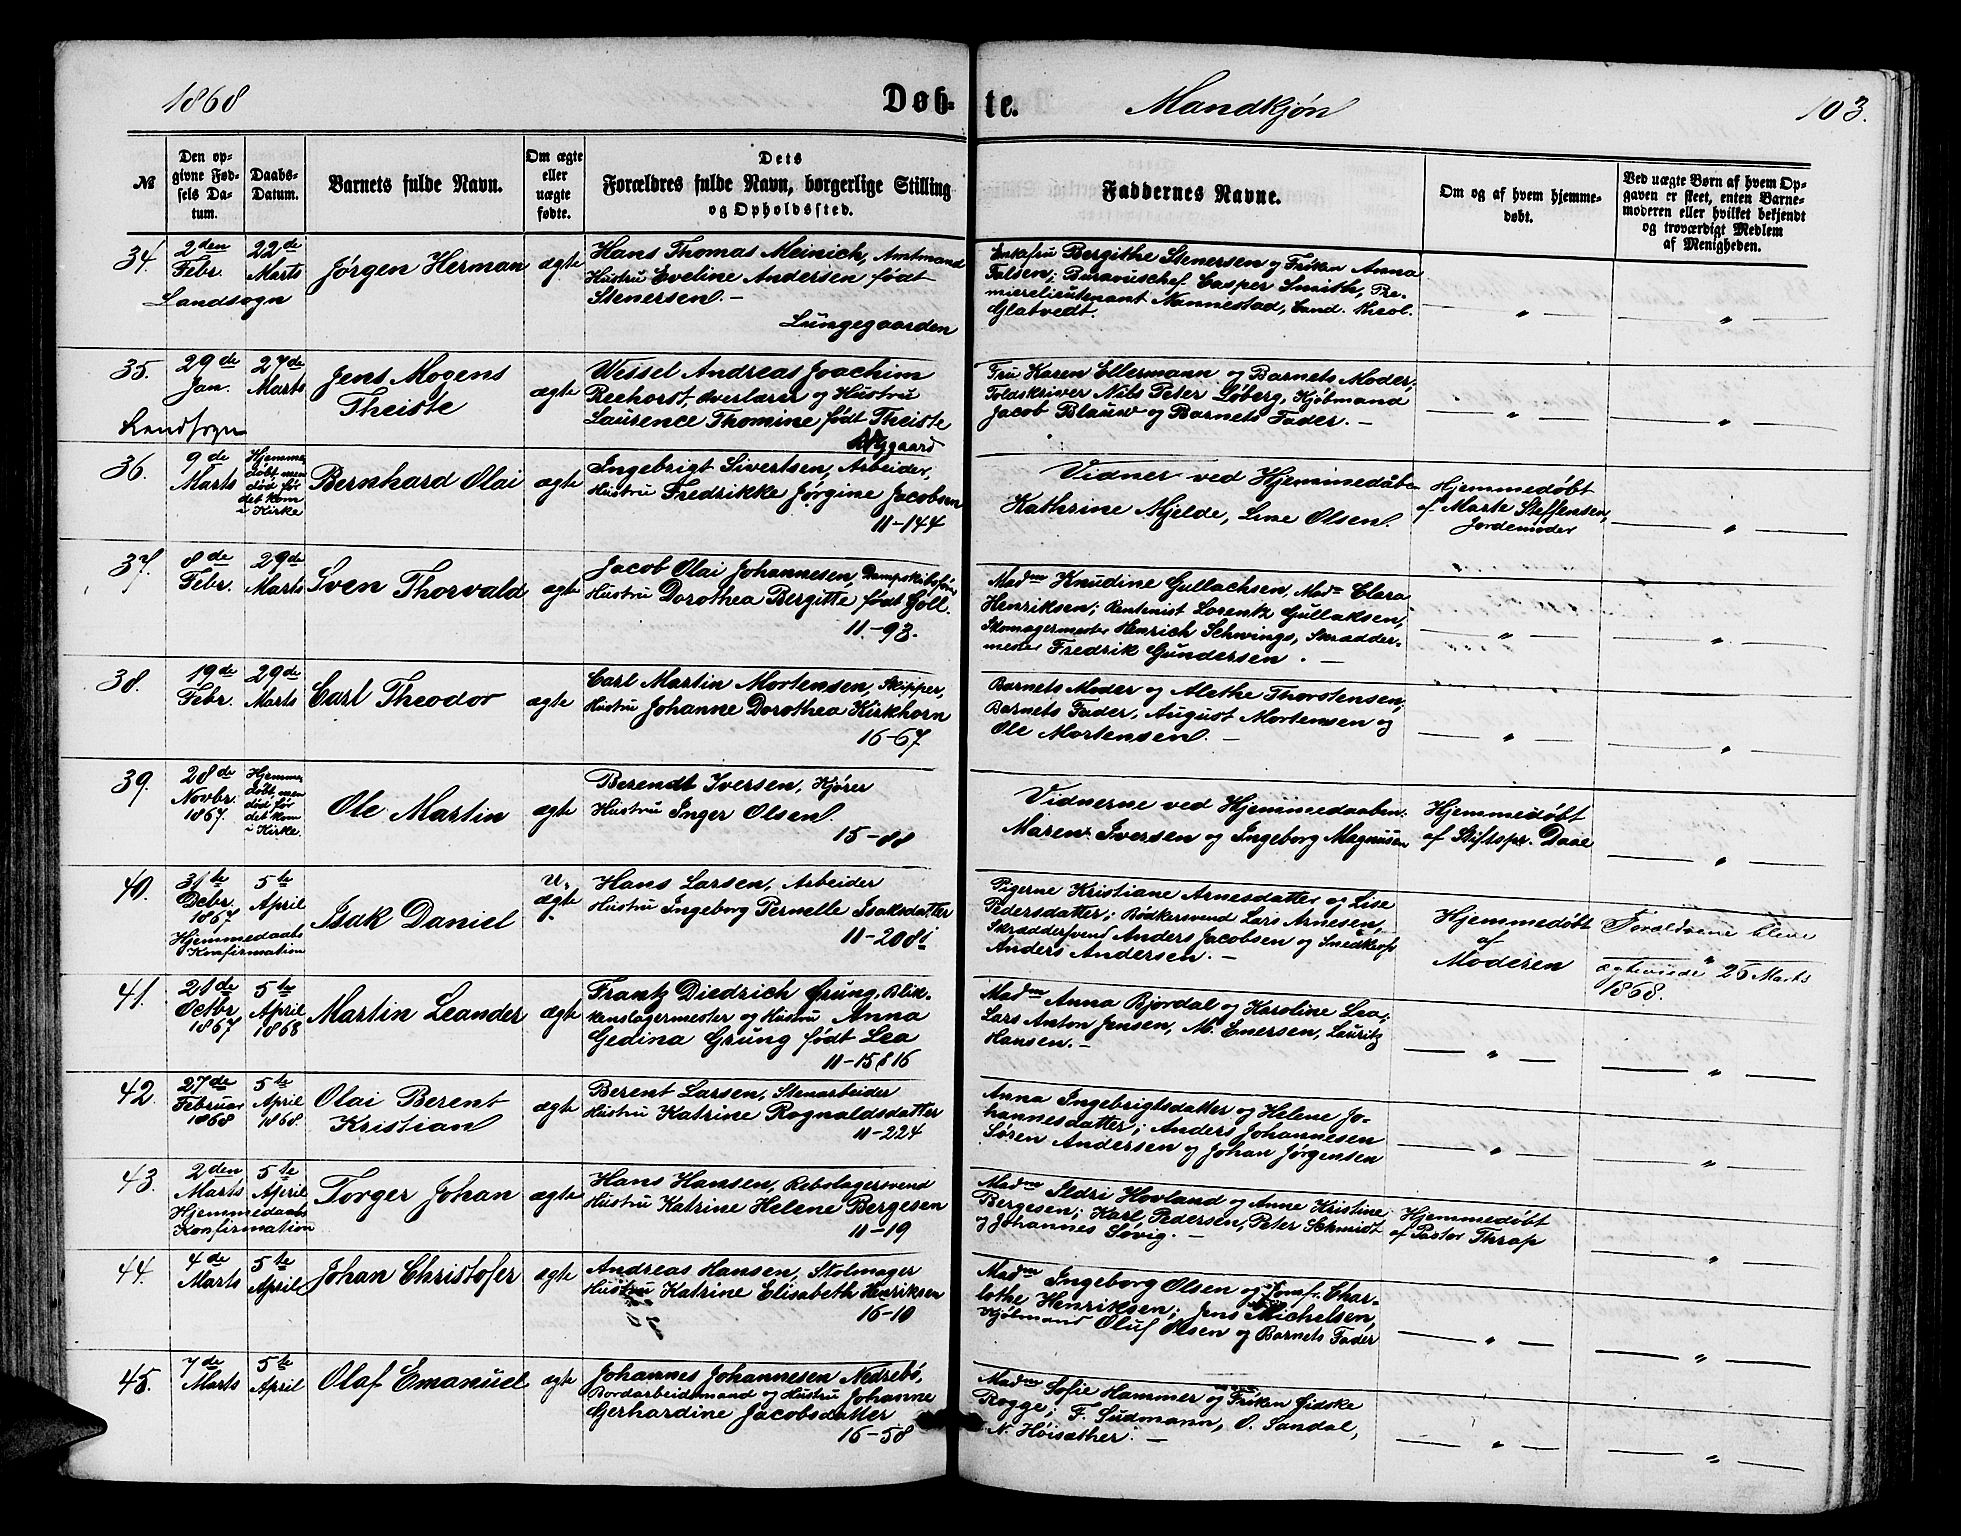 1868
Døb-
te.
Mandkjøn
103.
№
Den op-
givne Fød-
sels Da-
tum.
Daabs-
Datum.
Barnets fulde Navn.
Om ægte
eller
uægte
fødte.
Dets
Forældres fulde Navn, borgerlige Stilling
og Opholdssted.
Faddernes Navne.
Om og af hvem hjemme-
døbt.
Ved uægte Børn af hvem Op-
gaven er skeet, enten Barne-
moderen eller hvilket bekjendt
og troværdigt Medlem
af Menigheden.
34.
2den
Febr.
Landsogn
22de
Marts
Jørgen Herman
ægte
Hans Thomas Meinich, Amtmand
Hustru Eveline Andersen født
Stenersen. –
Lungegaarden
Enkefru Bergithe Stenersen og Frøken Anna
Falsen; Bureauschef Casper Smith, Pre-
mierelieutenant Nannestad, Cand. theol.
Glatvedt.
— " —
— " —
35.
29de
Jan.
Landsogn
27de
Marts
Jens Mogens
Theiste
ægte
Wessel Andreas Joachim
Reehorst, Overlærer og Hustru
Laurence Thomine født Theiste
Nygaard
Fru Karen Ellermann og Barnets Moder;
Toldskriver Nils Peter Løberg, Kjøbmand
Jacob Blauw og Barnets Fader. –
— " —
— " —
36.
9de
Marts
Hjemme-
døbt, men
død før
det kom
i Kirke
Bernhard Olai
ægte
Ingebrigt Sivertsen, Arbeider,
Hustru Fredrikke Jørgine Jacobsen
11-144
Vidner ved Hjemmedåben
Kathrine Mjelde, Line Olsen.
Hjemmedøbt
af Marte Steffensen,
Jordemoder
— " —
37.
8de
Febr.
29de
Marts
Sven Thorvald
ægte
Jacob Olai Johannesen, Dampskibsfører
Hustru Dorothea Bergitte født Goll.
11-93.
Madm Knudine Gullachsen, Madm Clara
Henriksen; Rentenist Lorentz Gullaksen,
Skomagermester Henrich Schwings, Skrædder-
mester Fredrik Gundersen. –
— " —
— " —
38.
19de
Febr.
29de
Marts
Carl Theodor
ægte
Carl Martin Mortensen, Skipper,
Hustru Johanne Dorothea Kirkhorn
16-67
Barnets Moder og Alethe Thorstensen;
Barnets Fader, August Mortensen og
Ole Mortensen. –
— " —
— " —
39.
28de
Novbr.
1867.
Hjemme-
døbt, men
død før
det kom
i Kirke.
Ole Martin
ægte
Berendt Iversen, Kjører
Hustru Inger Olsen.
15-88
Vidnerne ved Hjemmedaaben:
Maren Iversen og Ingeborg Magnusen
Hjemmedøbt
af Stiftspr. Daae
— " —
40.
31te
Debr.
1867
Hjemmedaabs
Konfirmation
5te
April
Isak Daniel
U-
ægte
Hans Larsen, Arbeider
Hustru Ingeborg Pernelle Isaksdatter
11-208i
Pigerne Kristiane Arnesdatter og Lise
Pedersdatter; Bødkersvend Lars Arnesen,
Skræddersvend Anders Jacobsen og
Anders Andersen. –
Hjemmedøbt
af
Moderen
Forældrene bleve
ægteviede 25 Marts
1868.
41.
21de
Octbr
1867
5te
April
1868
Martin Leander
ægte
Frantz Diedrich Grung, Blik-
kenslagermester og Hustru Anna
Gedina Grung født Lea
11-15&16
Madm Anna Bjordal og Karoline Lea;
Lars Anton Jensen, M. Enersen, Lauritz
Hansen. –
— " —
— " —
42.
27de
Februar
1868
5te
April
1868.
Olai Berent
Kristian
ægte
Berent Larsen, Stenarbeider
Hustru Katrine Rognaldsdatter
11-224
Anna Ingebrigtsdatter og Helene Jo-
hannesdatter; Anders Johannesen
Søren Andersen og Johan Jørgensen
— " —
— " —
43.
2den
Marts
Hjemmedaabs
Konfirmation
5te
April
Torger Johan
ægte
Hans Hansen, Rebslagersvend
Hustru Katrine Helene Bergesen
11-19
Madm Sidri Hovland og Anne Kristine
Bergesen; Karl Pedersen, Peter Schmidt
og Johannes Søvig. –
Hjemmedøbt
af Pastor Thrap
— " —
44.
4de
Marts
5te
April
Johan Christofer
ægte
Andreas Hansen, Stolmager
Hustru Katrine Elisabeth Henriksen
16-10
Madm Ingeborg Olsen og Jomf. Char-
lothe Henriksen; Jens Michelsen,
Kjøbmand Oluf Olsen og Barnets Fader
— " —
— " —
45.
7de
Marts
5te
April
Olaf Emanuel
ægte
Johannes Johannesen Nedrebø,
Bordarbeidsmand og Hustru Johanne
Gerhardine Jacobsdatter
16-58
Madm Sofie Hammer og Frøken Gidske
Rogge; F. Sudmann, O. Sandal,
N. Høisæther. –
— " —
— " —